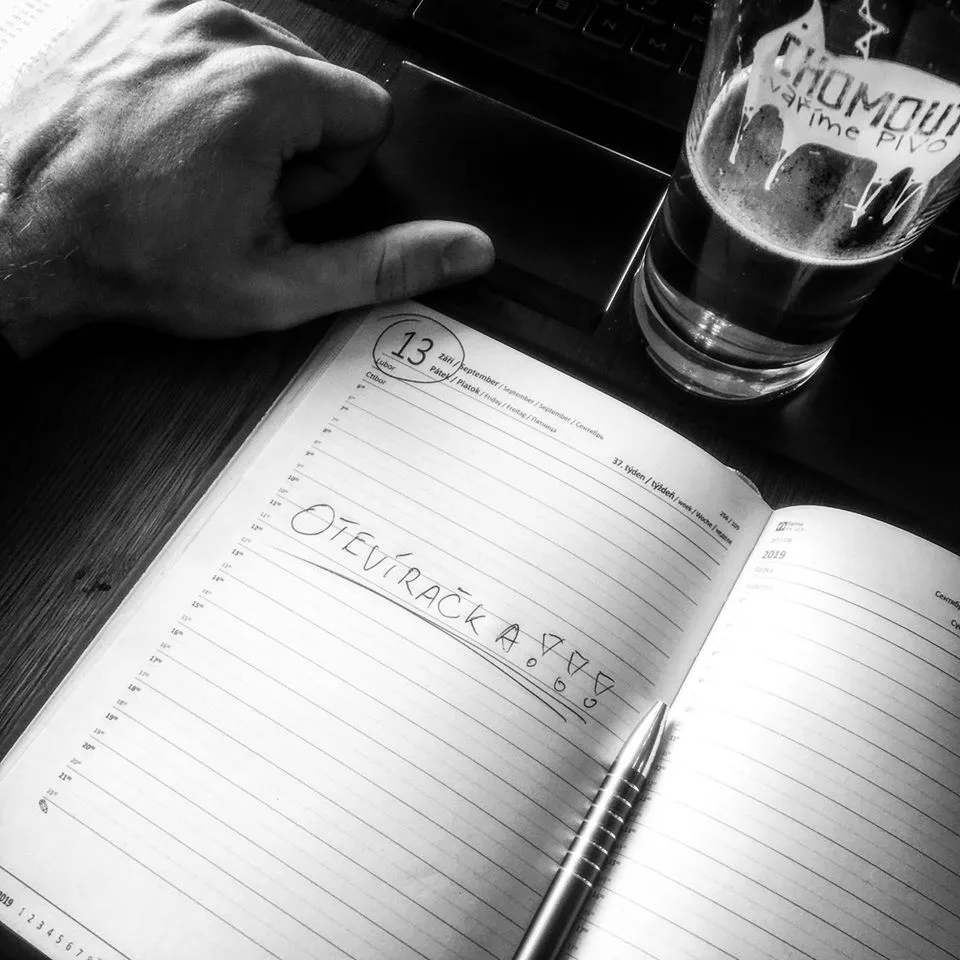 CHOMOUT
vaříme PIVO
13
Září / September / September / September / Сентябрь
Pátek / Piatok / Friday / Freitag / Пятница
Lubor
Ctibor
37. týden / týždeň / week / Woche / неделя
256 / 109
OTEVÍRAČKA!!!
10
11
12
13
14
15
16
17
18
19
20
21
2019 1 2 3 4 5 6 7 8
2019